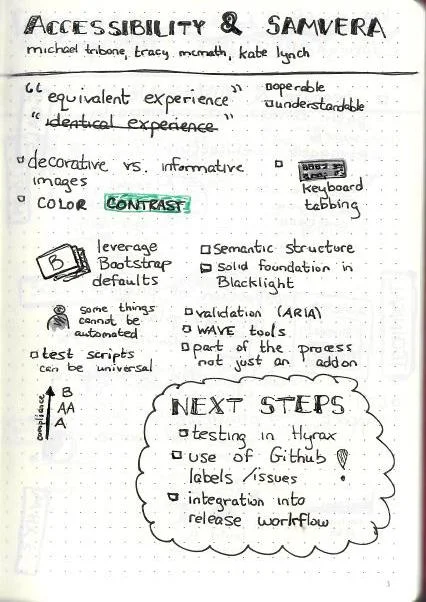 ACCESSIBILITY & SAMVERA
michael tribone, tracy mcmath, kate lynch
"equivalent experience"
"identical experience"
operable
understandable
decorative vs. informative
images
COLOR CONTRAST
keyboard
tabbing
B
leverage
Bootstrap
defaults
semantic structure
solid foundation in
Blacklight
some things
cannot be
automated
test scripts
can be universal
validation (ARIA)
WAVE tools
part of the process
not just an addon
compliance
B
AA
A
NEXT STEPS
testing in Hyrax
use of Github
labels/issues
!
integration into
release workflow